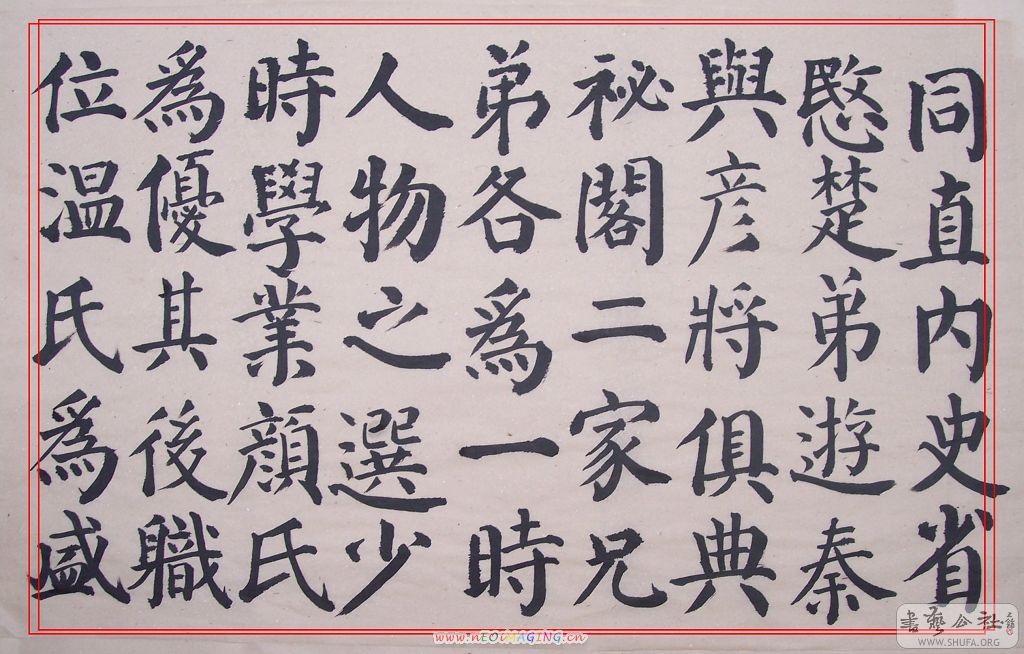 同直内史省
愍楚弟遊秦
與彦將俱典
祕閣二家兄
弟各為一時
人物之選少
時學業顔氏
為優其後職
位温氏為盛
書藝公社
WWW.SHUFA.ORG
www.nEOiMAGING.cn